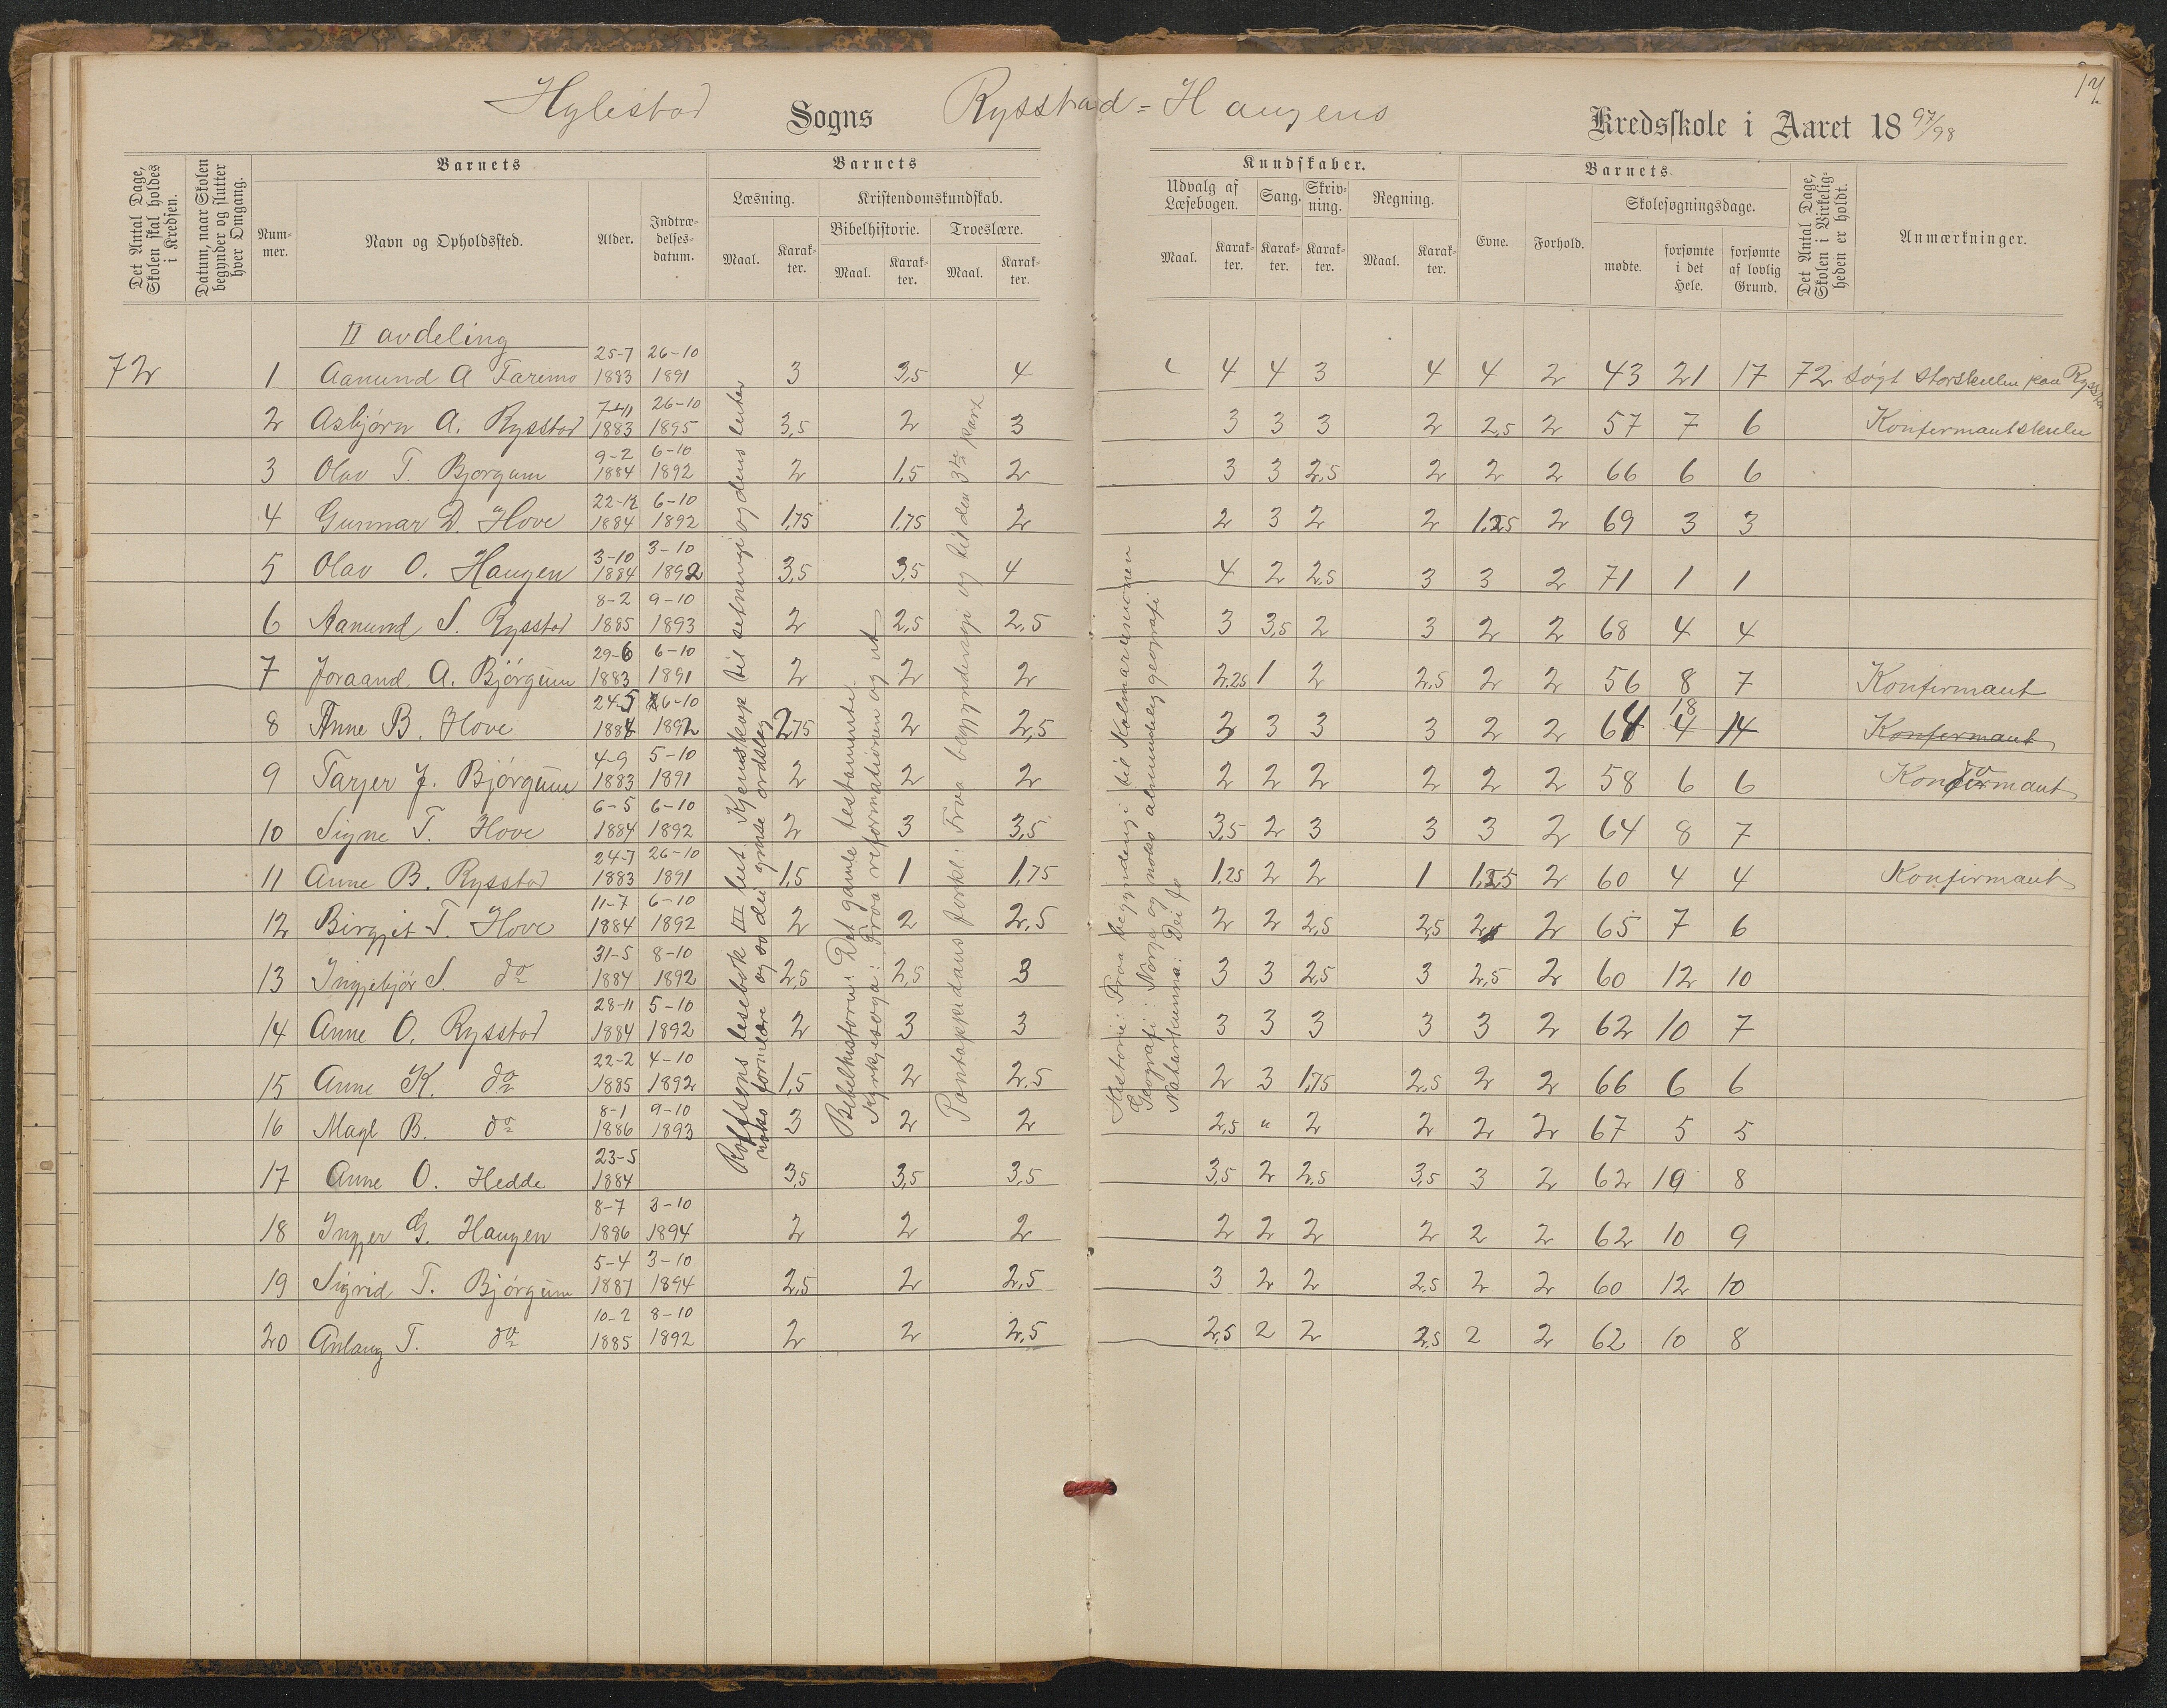 17
Hylestad Sogns Rysstad = Haugens Kredsskole i Aaret 18 97/98
Det Antal Dage, Skolen skal holdes i Kredsen.
Datum, naar Skolen begynder og slutter hver Omgang.
Barnets
Nummer.
Navn og Opholdssted.
Alder.
Indtrædelsesdatum.
Barnets
Læsning.
Maal.
Karakter.
Kristendomskundskab.
Bibelhistorie.
Maal.
Karakter.
Troeslære.
Maal.
Karakter.
Kundskaber.
Udvalg af Læsebogen.
Maal.
Karakter.
Sang.
Karakter.
Skrivning.
Karakter.
Regning.
Maal.
Karakter.
Barnets
Evne.
Forhold.
Skolesøgningsdage.
mødte.
forsømte i det Hele.
forsømte af lovlig Grund.
Det Antal Dage, Skolen i Virkeligheden er holdt.
Anmærkninger.
II avdeling
72 1 Aanund A Faremo 25-7 1883 26-10 1891 3 3,5 4 4 4 3 4 4 2 43 21 17 72 søgt storskulen paa Rysst
2 Asbjørn A. Rysstad 7-11 1883 26-10 1895 3,5 2 3 3 3 3 2 2,5 2 57 7 6 Konfirmantskule
3 Olav T. Bjorgum 9-2 1884 6-10 1892 2 1,5 2 3 3 2,5 2 2 2 66 6 6
4 Gunnar D. Hove 22-12 1884 6-10 1892 1,75 1,75 2 2 3 2 2 1,25 2 69 3 3
5 Olav O. Haugen 3-10 1884 3-10 1892 3,5 3,5 4 4 2 2,5 3 3 2 71 1 1
6 Aanund S. Rysstad 8-2 1885 9-10 1893 2 2,5 2,5 3 3,5 2 3 2 2 68 4 4
7 Joraand A. Bjórgum 29-6 1883 6-10 1891 2 2 2 2,25 1 2 2,5 2 2 56 8 7 Konfirmant
8 Anne B. Hove 24-5 1884 6-10 1892 2,75 2 2,5 3 3 3 3 2 2 64 18 4 14 Konfirmant
9 Tarjer J. Bjórgum 4-9 1883 5-10 1891 2 2 2 2 2 2 2 2 2 58 6 6 Konfirmant
10 Signe T. Hove 6-5 1884 6-10 1892 2 3 3,5 3,5 2 3 3 3 2 64 8 7
11 Anne B. Rysstad 24-7 1883 26-10 1891 1,5 1 1,75 1,25 2 2 1 1,25 2 60 4 4 Konfirmant
12 Birgjit T. Hove 11-7 1884 6-10 1892 2 2 2,5 2 2 2,5 2,5 2 2 65 7 6
13 Ingjebjór S. do 31-5 1884 8-10 1892 2,5 2,5 3 3 3 2,5 3 2,5 2 60 12 10
14 Anne O. Rysstad 28-11 1884 5-10 1892 2 3 3 3 3 3 3 3 2 62 10 7
15 Anne K. do 22-2 1885 4-10 1892 1,5 2 2,5 2 3 1,75 2,5 2 2 66 6 6
16 Magl B. do 8-1 1886 9-10 1893 3 2 2 2,5 " 2 2 2 2 67 5 5
17 Anne O. Hedde 23-5 1884 3,5 3,5 3,5 3,5 2 2,5 3,5 3 2 62 10 8
18 Ingjer G. Haugen 8-7 1886 3-10 1894 2 2 2 2 2 2 2 2 2 62 10 9
19 Sigrid T. Bjórgum 5-4 1887 3-10 1894 2,5 2 2,5 3 2 2 2,5 2 2 60 12 10
20 Anlaug T. do 10-2 1885 8-10 1892 2 2 2,5 2,5 2 2 2,5 2 2 62 10 8
Rolfsens lesebok III lut. Kjennskap til setningi og dens luter
noko formlære og so dei grunse ordslag
Bibelhistorie: Det gamle testamente.
Kyrkjesoga: Fraa reformationen og ut
Pontoppidans forkl.: Fraa begyndelsegi og til den 3die part
Historie: Fraa begyndingi til Kalmarunionen
Geografi: Norge og noko almindeleg geografi
Naturkunna: Dei fo